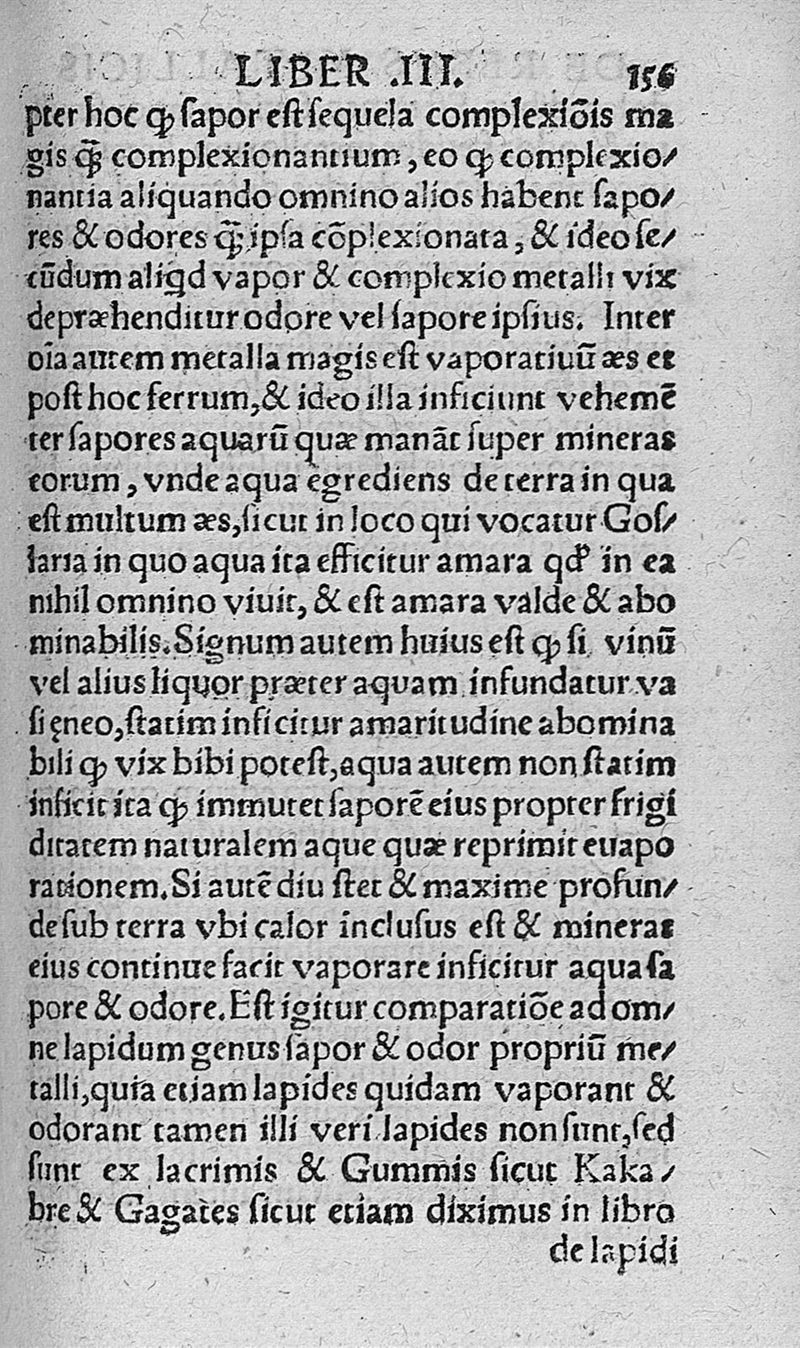 LIBER .III. 156
pter hoc ꝙ ſapor eſt ſequela complexiõis ma
gis ꝙ̃ complexionantium, eo ꝙ complexio/
nantia aliquando omnino alios habent ſapo/
res & odores ꝙ̃ ipſa cõplexionata, & ideo ſe/
cũdum aliqd vapor & complexio metalli vix
depræhenditur odore vel ſapore ipſius. Inter
oĩa autem metalla magis eſt vaporatiuũ æs et
poſt hoc ferrum, & ideo illa inficiunt vehemẽ
ter ſapores aquarũ quæ manãt ſuper mineras
eorum, vnde aqua egrediens de terra in qua
eſt multum æs, ſicut in loco qui vocatur Goſ/
laria in quo aqua ita efficitur amara qd' in ea
nihil omnino viuit, & eſt amara valde & abo
minabilis. Signum autem huius eſt ꝙ ſi vinũ
vel alius liquor præter aquam infundatur va
ſi ęneo, ſtatim inficitur amaritudine abomina
bili ꝙ vix bibi poteſt, aqua autem non ſtatim
inficit ita ꝙ immutet ſaporẽ eius propter frigi
ditatem naturalem aque quæ reprimit euapo
rationem. Si autẽ diu ſtet & maxime profun/
de ſub terra vbi calor incluſus eſt & mineras
eius continue facit vaporare inficitur aqua ſa
pore & odore. Eſt igitur comparatiõe ad om/
ne lapidum genus ſapor & odor propriũ me/
talli, quia etiam lapides quidam vaporant &
odorant tamen illi veri lapides non ſunt, ſed
ſunt ex lacrimis & Gummis ſicut Kaka/
bre & Gagates ſicut etiam diximus in libro
de lapidi